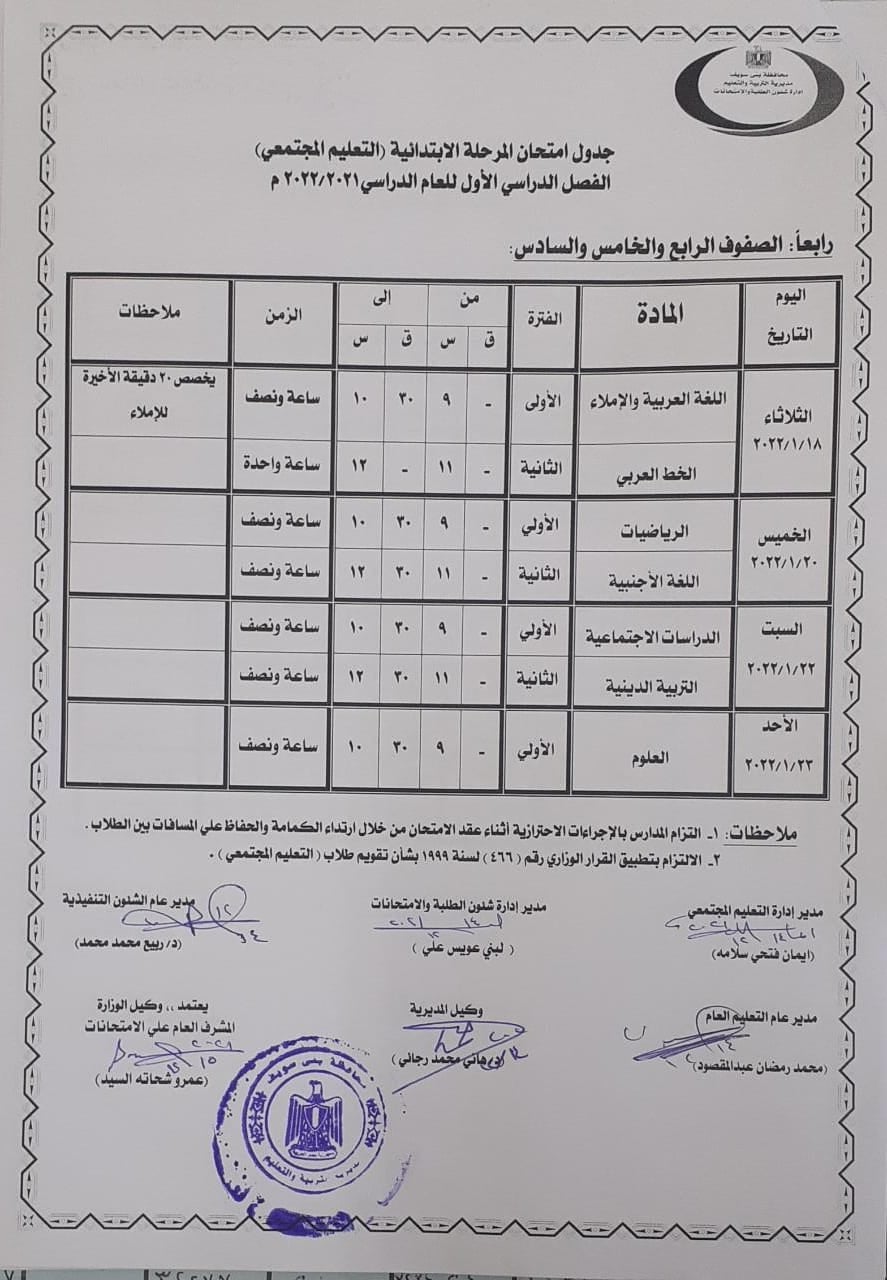 محافظة بنى سويف
مديرية التربية والتعليم
إدارة شئون الطلبة والامتحانات
جدول امتحان المرحلة الابتدائية (التعليم المجتمعي)
الفصل الدراسي الأول للعام الدراسي ٢٠٢٢/٢٠٢١ م
رابعاً: الصفوف الرابع والخامس والسادس:
اليوم التاريخ المادة الفترة من إلى الزمن ملاحظات
ق س ق س
الثلاثاء ٢٠٢٢/١/١٨ اللغة العربية والإملاء الأولى - ٩ ٣٠ ١٠ ساعة ونصف يخصص ٢٠ دقيقة الأخيرة للإملاء
الخط العربي الثانية - ١١ - ١٢ ساعة واحدة
الخميس ٢٠٢٢/١/٢٠ الرياضيات الأولي - ٩ ٣٠ ١٠ ساعة ونصف
اللغة الأجنبية الثانية - ١١ ٣٠ ١٢ ساعة ونصف
السبت ٢٠٢٢/١/٢٢ الدراسات الاجتماعية الأولي - ٩ ٣٠ ١٠ ساعة ونصف
التربية الدينية الثانية - ١١ ٣٠ ١٢ ساعة ونصف
الأحد ٢٠٢٢/١/٢٣ العلوم الأولي - ٩ ٣٠ ١٠ ساعة ونصف
ملاحظات: ١- التزام المدارس بالإجراءات الاحترازية أثناء عقد الامتحان من خلال ارتداء الكمامة والحفاظ علي المسافات بين الطلاب .
٢- الالتزام بتطبيق القرار الوزاري رقم ( ٤٦٦ ) لسنة ١٩٩٩ بشأن تقويم طلاب ( التعليم المجتمعي ) .
مدير إدارة التعليم المجتمعي مدير إدارة شئون الطلبة والامتحانات مدير عام الشئون التنفيذية
(ايمان فتحي سلامه) ( لبني عويس علي ) (د/ ربيع محمد محمد)
مدير عام التعليم العام وكيل المديرية يعتمد ،، وكيل الوزارة
المشرف العام علي الامتحانات
(محمد رمضان عبدالمقصود) (د/ هاني محمد رجائي) (عمرو شحاته السيد)
محافظة بنى سويف
مديرية التربية والتعليم